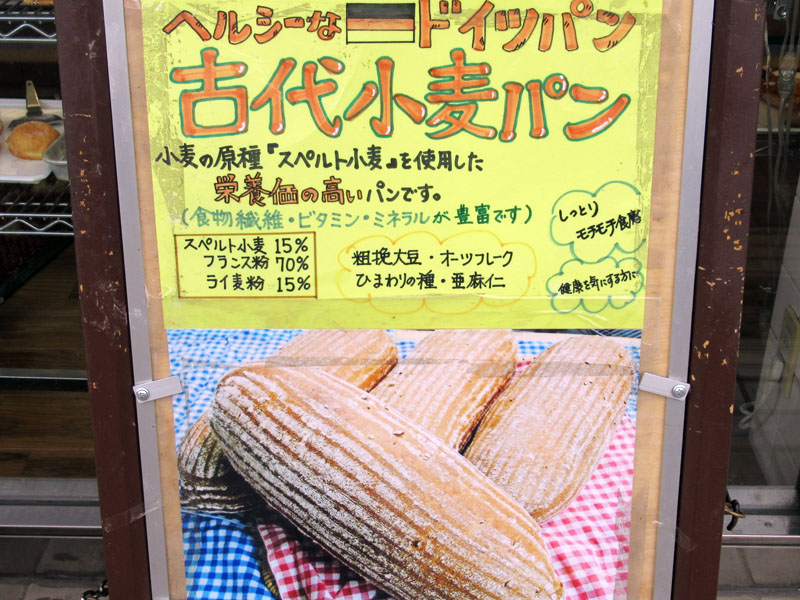 ヘルシーなドイツパン
古代小麦パン
小麦の原種『スペルト小麦』を使用した
栄養価の高いパンです。
(食物繊維・ビタミン・ミネラルが豊富です)
しっとり
モチモチ食感
スペルト小麦 15%
フランス粉 70%
ライ麦粉 15%
粗挽大豆・オーツフレーク
ひまわりの種・亜麻仁
健康を気にする方に